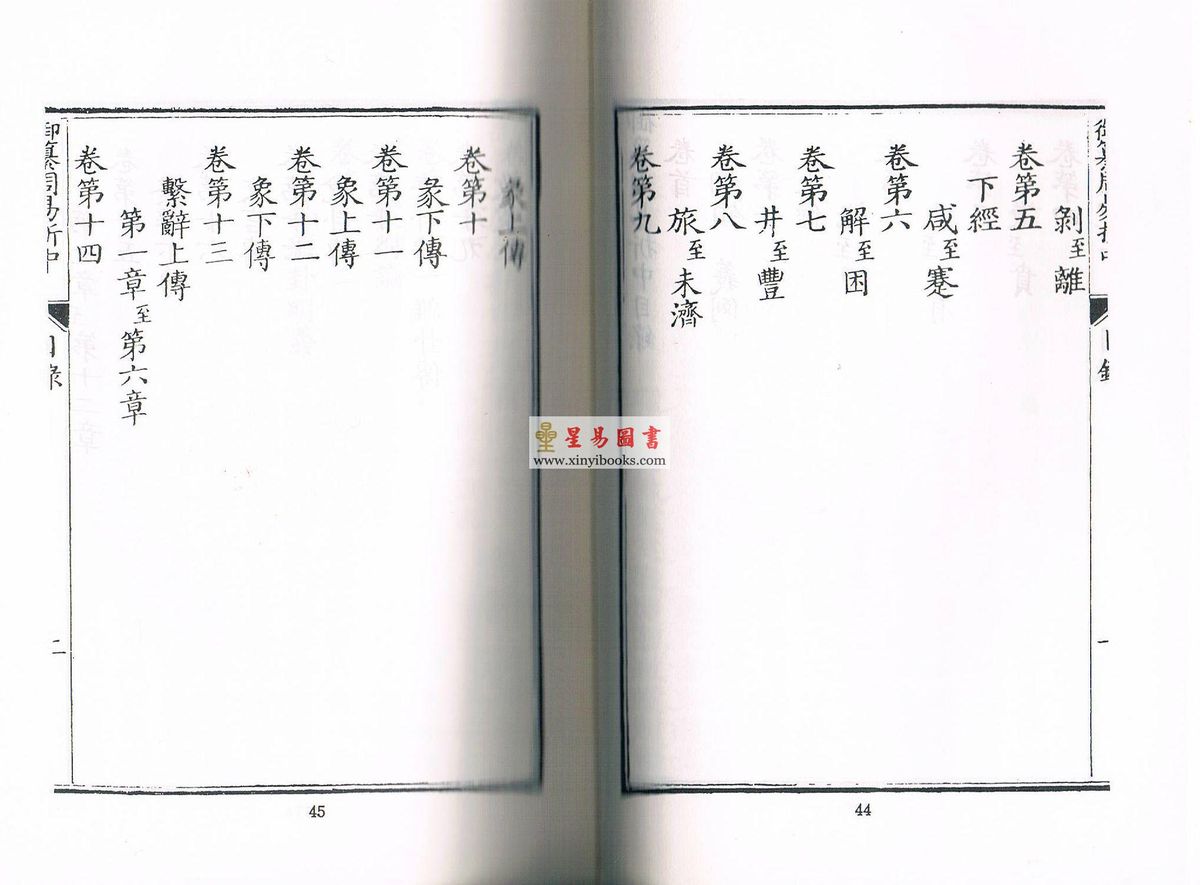 剝至離
卷第五
下經
咸至蹇
卷第六
解至困
卷第七
井至豐
卷第八
旅至未濟
卷第九
目錄
一
44
彖上傳
卷第十
彖下傳
卷第十一
象上傳
卷第十二
象下傳
卷第十三
繫辭上傳
第一章至第六章
卷第十四
御纂周易折中
目錄
二
45
星易圖書
www.xinyibooks.com